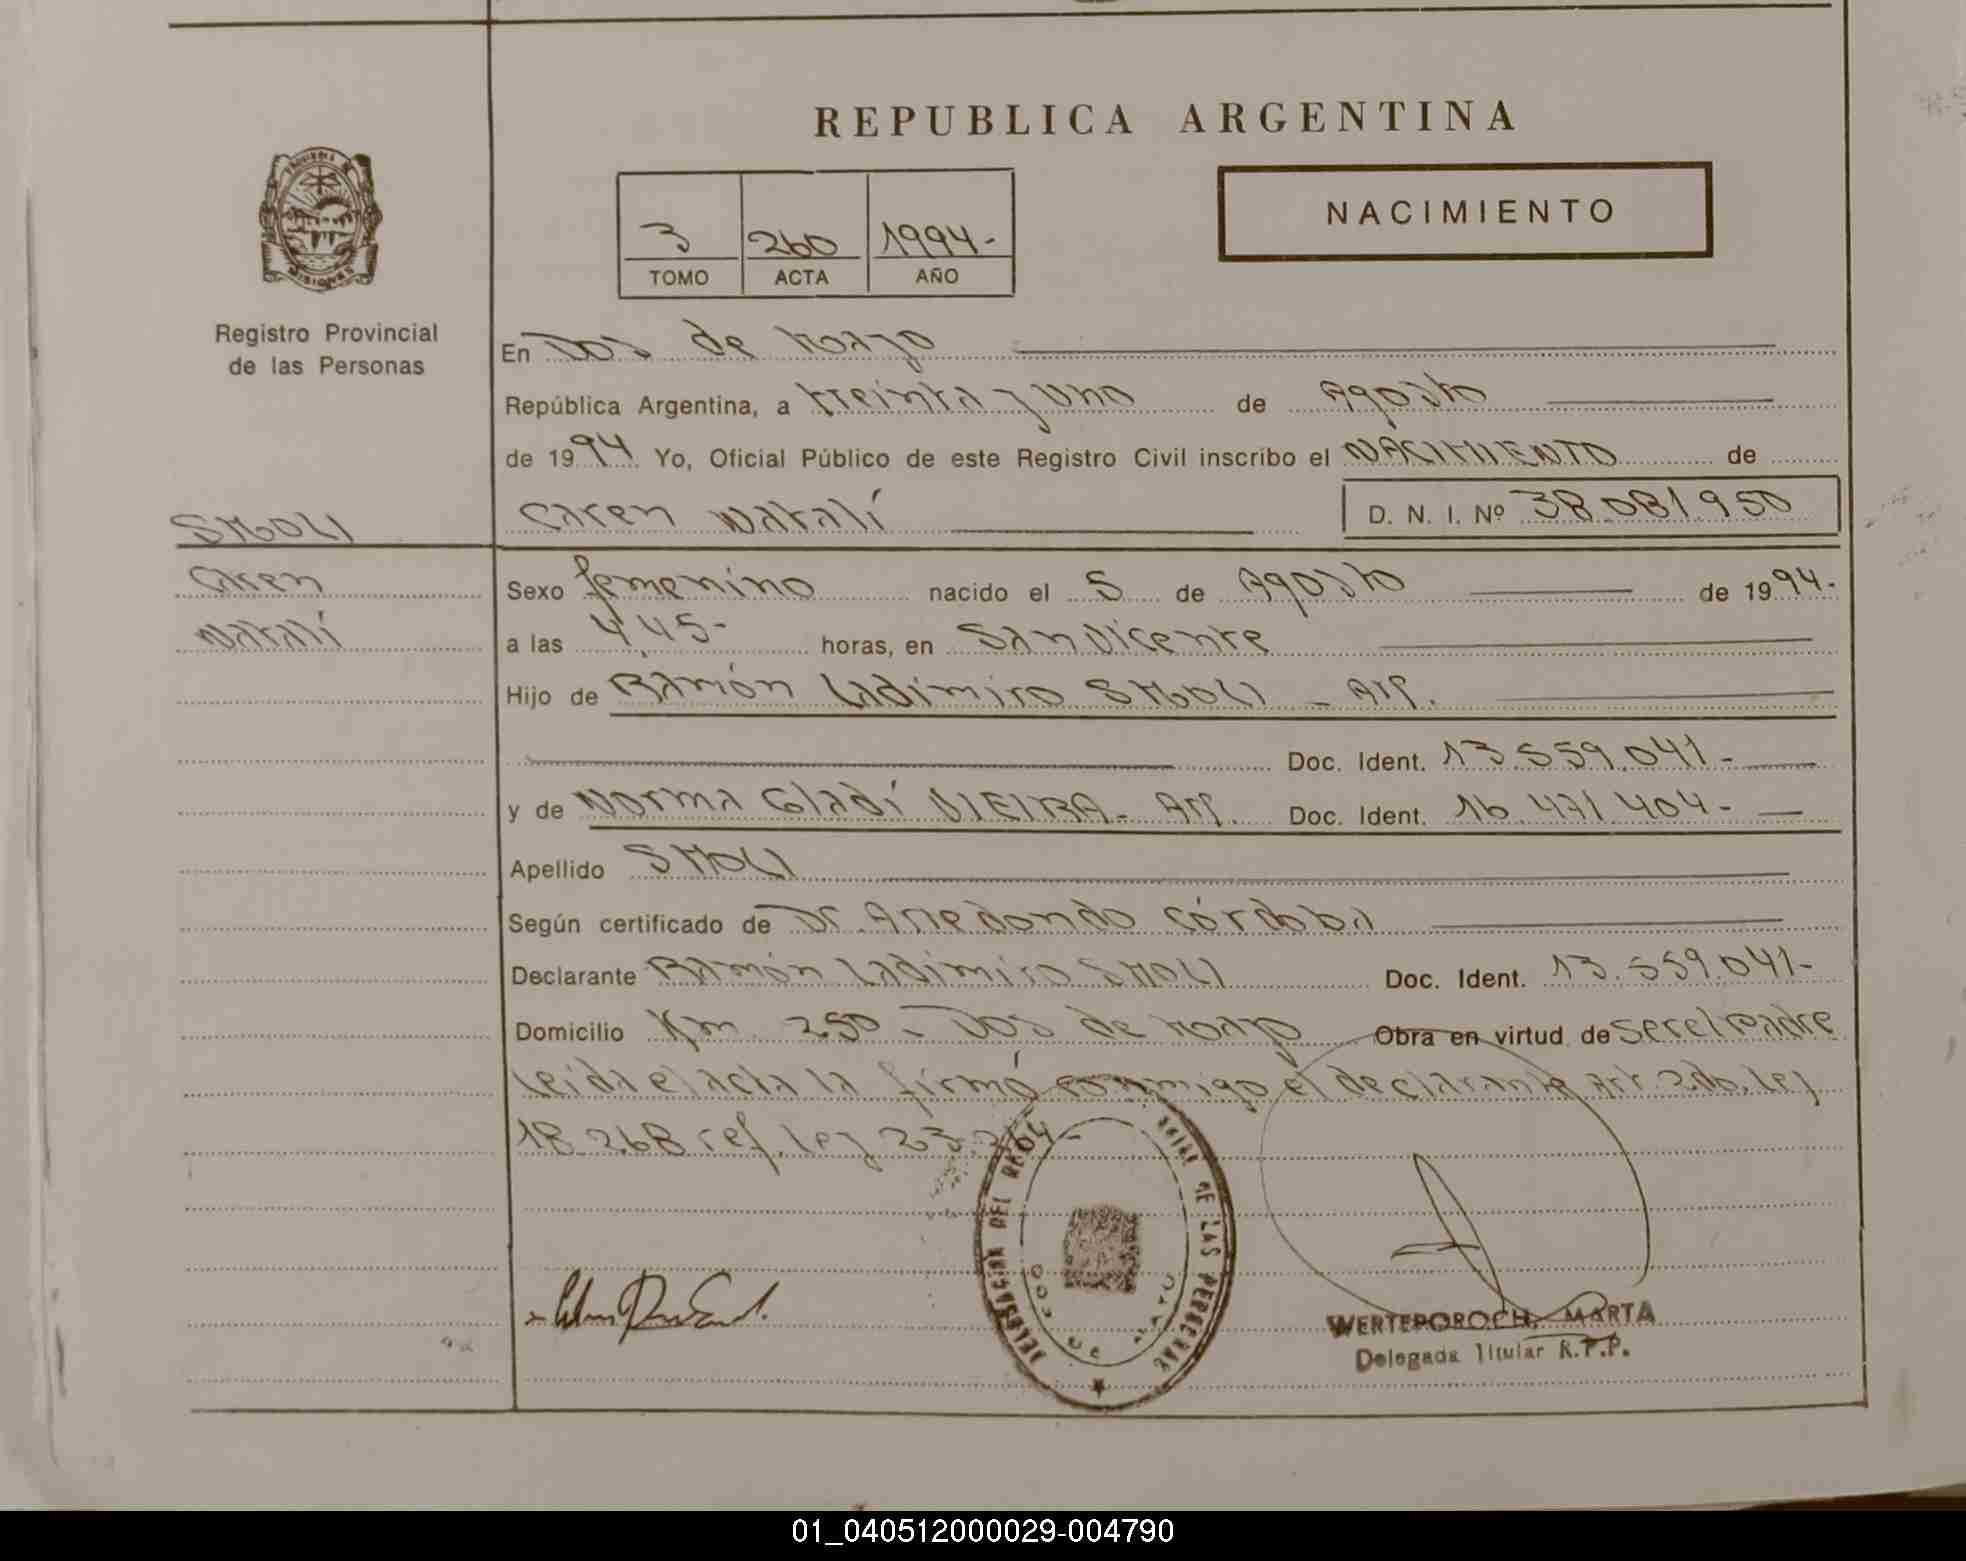 REPUBLICA ARGENTINA
NACIMIENTO
3 260 1994-
TOMO ACTA AÑO
MISIONES
Registro Provincial
de las Personas
En Dos de Mayo
República Argentina, a treinta y uno de Agosto
de 1994 Yo, Oficial Público de este Registro Civil inscribo el NACIMIENTO de
SMOLI
Caren Natalí D. N. I. Nº 38.081.950
Caren
Natalí
Sexo femenino nacido el 5 de Agosto de 1994-
a las 4,45- horas, en San Vicente
Hijo de Ramón Ladimiro SMOLI - Arg.
Doc. Ident. 13.559.041-
y de Norma Gladí VIEIRA - Arg. Doc. Ident. 16.471.404-
Apellido SMOLI
Según certificado de Dr. Arredondo Córdoba
Declarante Ramón Ladimiro SMOLI Doc. Ident. 13.559.041-
Domicilio Km 250 - Dos de Mayo Obra en virtud de ser el padre
leida el acta la firmó conmigo el declarante Art. 2do. Ley
18.268 ref. Ley 23.
DELEGACION DEL REG. DE LAS PERSONAS
DOS DE MAYO
WERTEPOROCH, MARTA
Delegada Titular R.P.P.
01_040512000029-004790